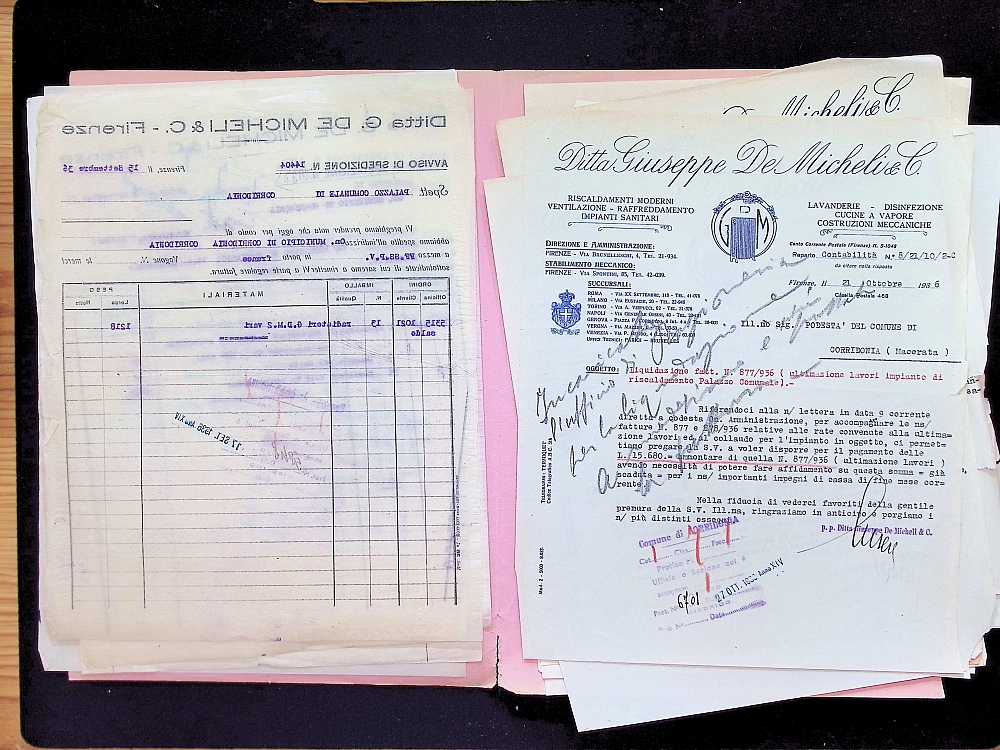 Ditta G. DE MICHELI & C. - Firenze
AVVISO DI SPEDIZIONE N. 14404
Firenze, li 15 Settembre 36
Spett. PALAZZO COMUNALE DI CORRIDONIA
Vi preghiamo prender nota che per oggi per conto di
abbiamo spedito all'indirizzo On. MUNICIPIO DI CORRIDONIA CORRIDONIA
a mezzo in porto franco Vagone N. le merci
sottoindicate di cui saremo a rimettervi regolare fattura.
ORDINI IMBALLO MATERIALI PESO
Cliente Quantità Lordo Netto
5515 1021 13 radiatori G.D.M.2 vari 1218
saldo
17 SET. 1936 Anno XIV
Micheli & C.
Ditta Giuseppe De Micheli & C.
RISCALDAMENTI MODERNI
VENTILAZIONE - RAFFREDDAMENTO
IMPIANTI SANITARI
G M
LAVANDERIE - DISINFEZIONE
CUCINE A VAPORE
COSTRUZIONI MECCANICHE
DIREZIONE E AMMINISTRAZIONE:
FIRENZE - VIA BRUNELLESCHI, 4, TEL. 21-036.
STABILIMENTO MECCANICO:
FIRENZE - VIA SPONTINI, 85, TEL. 42-039.
SUCCURSALI:
ROMA - VIA XX SETTEMBRE, 118 - TEL. 41-075
MILANO - VIA EUSTACHI, 30 - TEL. 22-945
TORINO - VIA A. VESPUCCI, 62 - TEL. 31-075
NAPOLI
GENOVA
VERONA
VENEZIA
UFFICI TECNICI: PARIGI - BRUXELLES
Conto Corrente Postale (Firenze) N. 5-1048
Reparto Contabilità N.° 8/21/10/2-C
da citare nella risposta
Firenze, li 21 Ottobre 1936
Casella Postale 468
Ill.mo Sig. PODESTA' DEL COMUNE DI
CORRIDONIA ( Macerata )
OGGETTO: Liquidazione fatt. N. 877/936 ( ultimazione lavori impianto di
riscaldamento Palazzo Comunale).-
Riferendoci alla n/ lettera in data 9 corrente
diretta a codesta On. Amministrazione, per accompagnare le ns/
fatture N. 877 e 878/936 relative alle rate convenute alla ultima=
zione lavori ed al collaudo per l'impianto in oggetto, ci permet=
tiamo pregare la S.V. a voler disporre per il pagamento delle
L. 15.680.= ammontare di quella N. 877/936 ( ultimazione lavori )
avendo necessità di potere fare affidamento su questa somma = già
scaduta = per i ns/ importanti impegni di cassa di fine mese cor=
rente.
Nella fiducia di vederci favoriti della gentile
premura della S.V. Ill.ma, ringraziamo in anticipo e porgiamo i
n/ più distinti ossequi
p. p. Ditta Giuseppe De Micheli & C.
Comune di
Cat. Clas. Fasc.
Prot. N. 6701
27 OTT. 1936 Anno XIV
Data
Mod. 2 - 5000 - 8-935